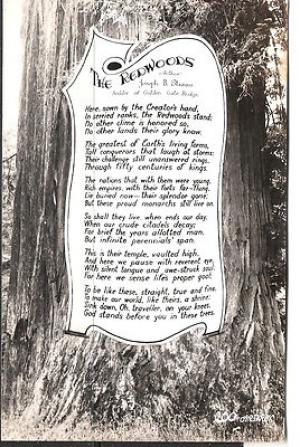 THE REDWOODS
Author
Joseph B. Strauss
Builder of Golden Gate Bridge
Here, sown by the Creator's hand,
In serried ranks, the Redwoods stand:
No other clime is honored so,
No other lands their glory know.
The greatest of Earth's living forms,
Tall conquerors that laugh at storms;
Their challenge still unanswered rings,
Through fifty centuries of kings.
The nations that with them were young,
Rich empires, with their forts far-flung,
Lie buried now—their splendor gone:
But these proud monarchs still live on.
So shall they live, when ends our day,
When our crude citadels decay;
For brief the years allotted man,
But infinite perennials' span.
This is their temple, vaulted high,
And here we pause with reverent eye,
With silent tongue and awe-struck soul;
For here we sense life's proper goal:
To be like these, straight, true and fine,
To make our world, like theirs, a shrine:
Sink down, Oh, traveller, on your knees,
God stands before you in these trees.